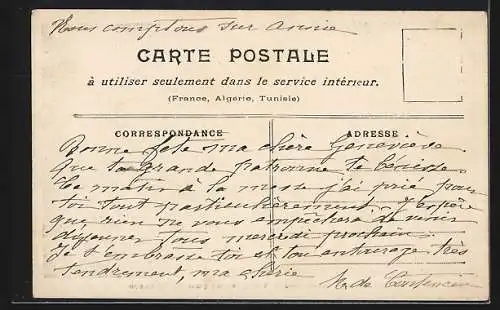 Nous comptons sur Annie
CARTE POSTALE
à utiliser seulement dans le service intérieur.
(France, Algerie, Tunisie)
CORRESPONDANCE
ADRESSE
Bonne fête ma chère Geneviève
Que ta grande patronne te bénisse.
Ce matin à la messe j'ai prié pour
toi tout particulièrement. J'espère
que rien ne vous empêchera de venir
déjeuner tous mercredi prochain.
Je t'embrasse toi et ton entourage très
tendrement, ma chérie
M. de